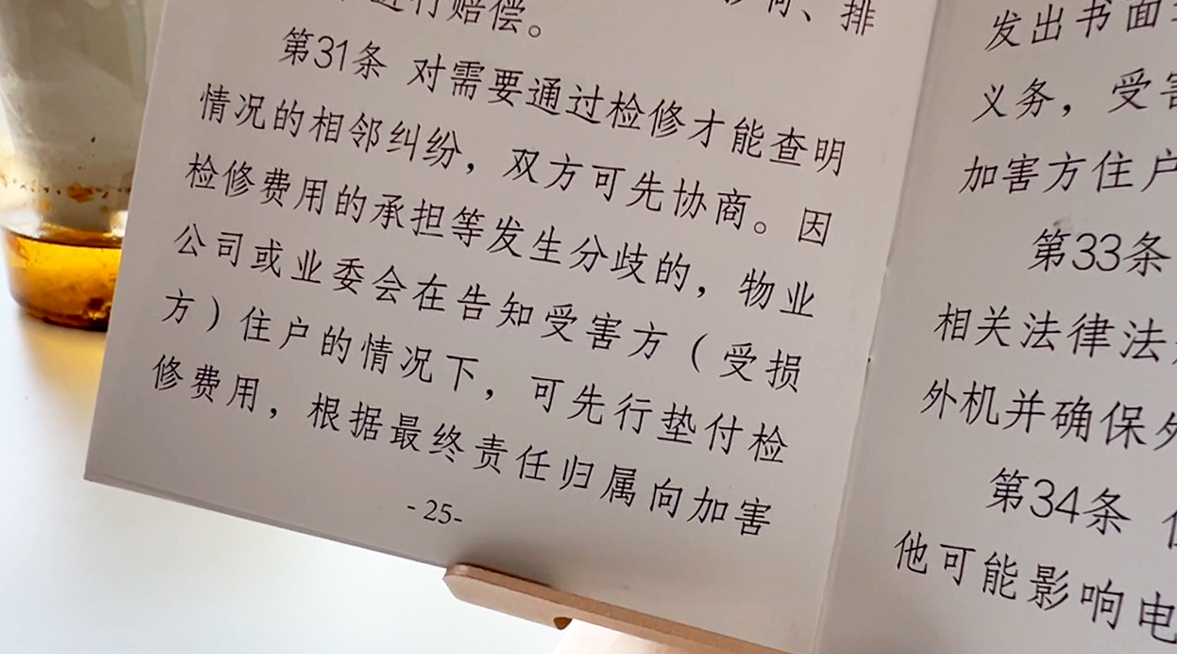 进行赔偿。
响、排
第31条 对需要通过检修才能查明
情况的相邻纠纷，双方可先协商。因
检修费用的承担等发生分歧的，物业
公司或业委会在告知受害方（受损
方）住户的情况下，可先行垫付检
修费用，根据最终责任归属向加害
-25-
发出书面
义务，受害
加害方住户
第33条
相关法律法
外机并确保外
第34条
他可能影响电